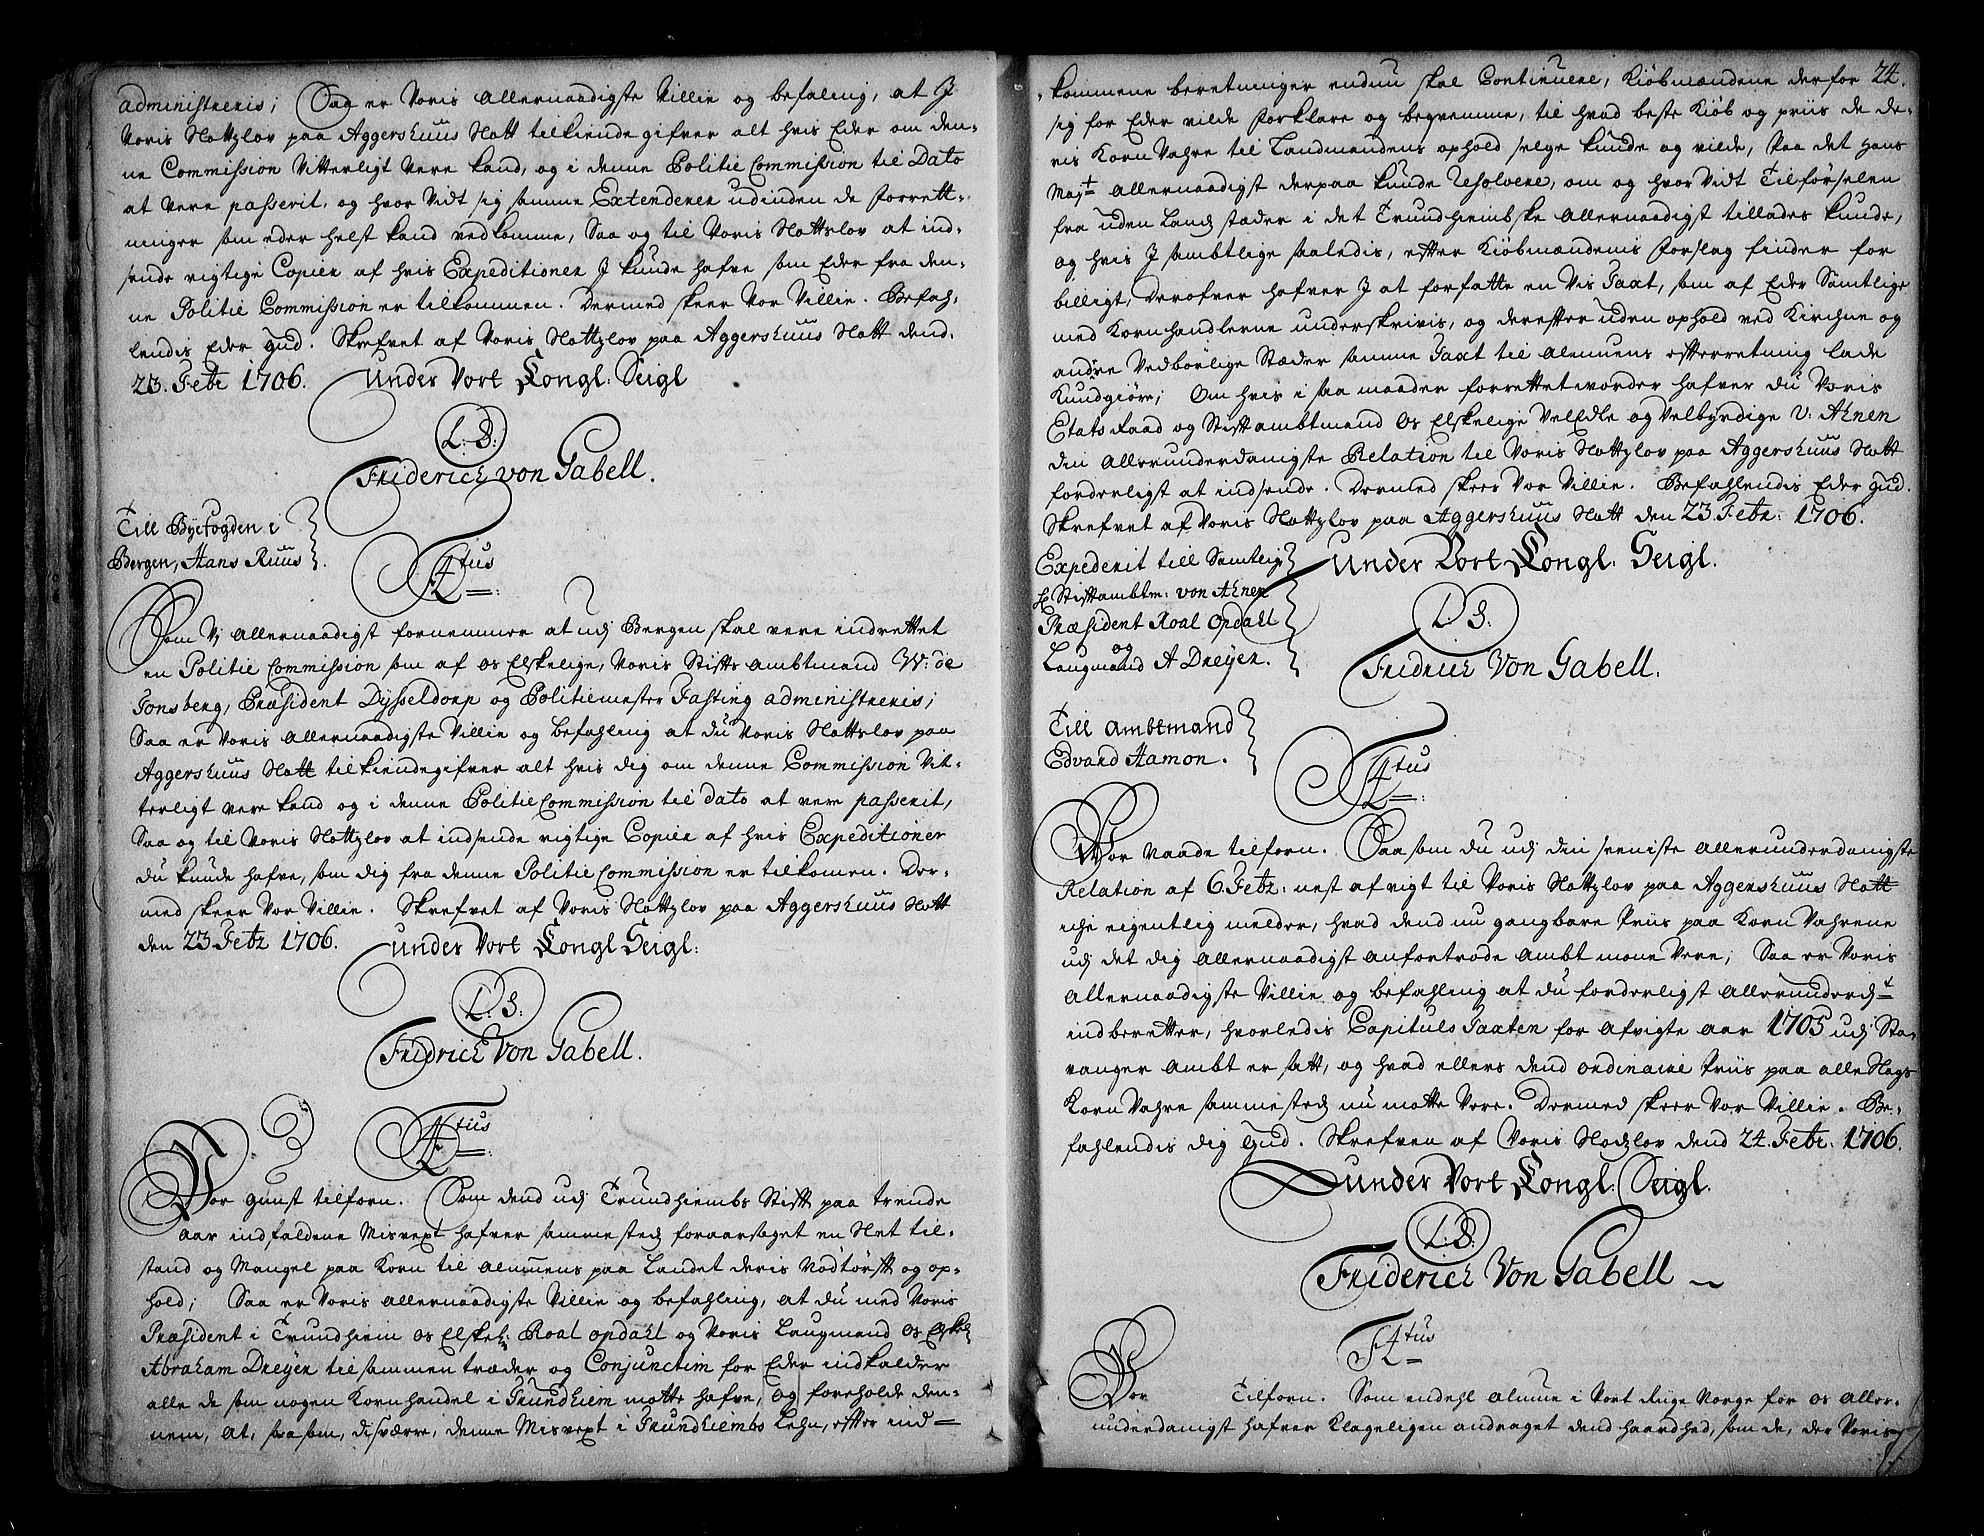 administreris; Saa er Voris allernaadigste Villie og befaling, at J
Voris Slottzlov paa Aggershuus Slott tilkiende gifver alt hvis Eder om den-
ne Commission Vitterligt Vere kand, og i denne Politie Commission til Dato
at Vere passerit, og hvor Vidt sig samme Extenderer udinden de forrett-
ninger som eder helst kand vedkomme, Saa og til Voris Slottslov at ind-
sende rigtige Copier af hvis Expeditioner J kunde hafve som Eder fra den-
ne Politie Commission er tilkommen. Dermed skeer Vor Villie. Befah-
lendis Eder Gud. Skrefvet af Voris Slottzlov paa Aggershuus Slott dend.
23. Febr 1706. Under Vort Kongl: Seigl
L: S:
Friderich von Gabell.
Till Byefogden i
Bergen, Hans Ruus
F 4tus
Som Vj allernaadigst fornemmer at udj Bergen skal vere indrettet
en Politie Commission som af os Elskelige, Voris Stifts Ambtmand W: de
Tonsberg, Præsident Dysseldorp og Politiemester Fasting administreris;
Saa er Voris allernaadigste Villie og befahling at du Voris Slottslov paa
Aggershuus Slott tilkiendegifver alt hvis dig om denne Commission Vit-
terligt vere kand og i denne Politie Commission til dato at vere passerit,
Saa og til Voris Slottzlov at indsende rigtige Copier af hvis Expeditioner
du kunde hafve, som dig fra denne Politie Commission er tilkomen. Der-
med skeer Vor Villie. Skrefvet af Voris Slottzlov paa Aggershuus Slott
den 23 Febr 1706. under Vort Kongl Seigl:
L: S:
Fridrich Von Gabell.
F 4tus
Vor gunst tilforn. Som dend udj Trundhiembs Stift paa trende
aar indfaldene Misvext hafver sammesteds foraarsaget en slet til-
stand og Mangel paa Korn til almuens paa Landet deris Nødtørft og op-
hold; Saa er Voris allernaadigste Villie og befahling, at du med Voris
Præsident i Trundhiem os Elskel: Roal opdahl og Voris Laugmand os Elskel:
Abraham Dreyer tilsammen træder og Conjunctim for Eder indkalder
alle de som nogen Kornhandel i Trundhiem motte hafve, og foreholde den-
nem, at, saasom, disværre, denne Misvext i Trundhiembs Lehn, efter ind=
24.
kommene beretninger endnu skal Continuere, Kiøbmændene derfor
sig for Eder vilde forklare og beqvemme, til hvad beste Kiøb og priis de de-
ris Korn Vahre til Landmandens ophold selge kunde og vilde, Paa det Hans
Mayt allernaadigst derpaa kunde resolvere, om og hvor Vidt Tilførselen
fra uden Lands stæder i det Trundhiembske allernaadigst tillades kunde,
og hvis J sambtlige saaledis, efter Kiøbmændenis Forslag finder for
billigt, derofver hafver J at forfatte en Vis Taxt, som af Eder Samtlige
med Kornhandlerne underskrivis, og derefter uden ophold ved Kirchne og
andre Vedbørlige Stæder samme Taxt til Almuens efterretning lade
Kundgiøre; Om hvis i saa maader forrettet vorder hafver du Voris
Etats Raad og Stiftambtmand os Elskelige Vel Edle og Velbyrdige V: Ahnen
din allerunderdanigste Relation til Voris Slottzlov paa Aggershuus Slott
forderligst at indsende. Dermed skeer Vor Villie. Befahlendis Eder Gud.
Skrefvet af Voris Slottzlov paa Aggershuus Slott den 23 Febr: 1706.
Expederit till Samtlig
Stiftambtm: von Ahnen
Præsident Roal Opdahl
og
Laugmand A Dreyer.
Under Vort Kongl. Seigl.
L: S:
Fridrich Von Gabell.
Till Ambtmand
Edvard Hamon.
F 4tus
Vor Naade tilforn. Saasom du udj din seeniste allerunderdanigste
Relation af 6. Febr: nest afvigt til Voris Slottzlov paa Aggershuus Slott
iche eigentlig melder, hvad dend nu gangbare Priis paa Korn Vahrene
udj det dig allernaadigst anfortrode Ambt mone Vere; Saa er Voris
Allernaadigste Villie og befahling at du forderligst allerunderdst
indberetter, hvorledis Capituls Taxten for afvigte aar 1705 udj Sta-
vanger Ambt er satt, og hvad ellers dend ordinaire Priis paa alle Slags
Korn Vahre sammesteds nu motte Vere. Dermed skeer Vor Villie. Be-
fahlendis dig Gud. Skrefven af Voris Slodzlov dend 24. Febr: 1706.
under Vort Kongl. Seigl.
L: S:
Friderich Von Gabell
F 4tus
Vor Tilforn. Som endehl Almue i Vort Riige Norge for os Aller-
underdanigst hafver klageligen andraget dend haardhed, som de, der Voris